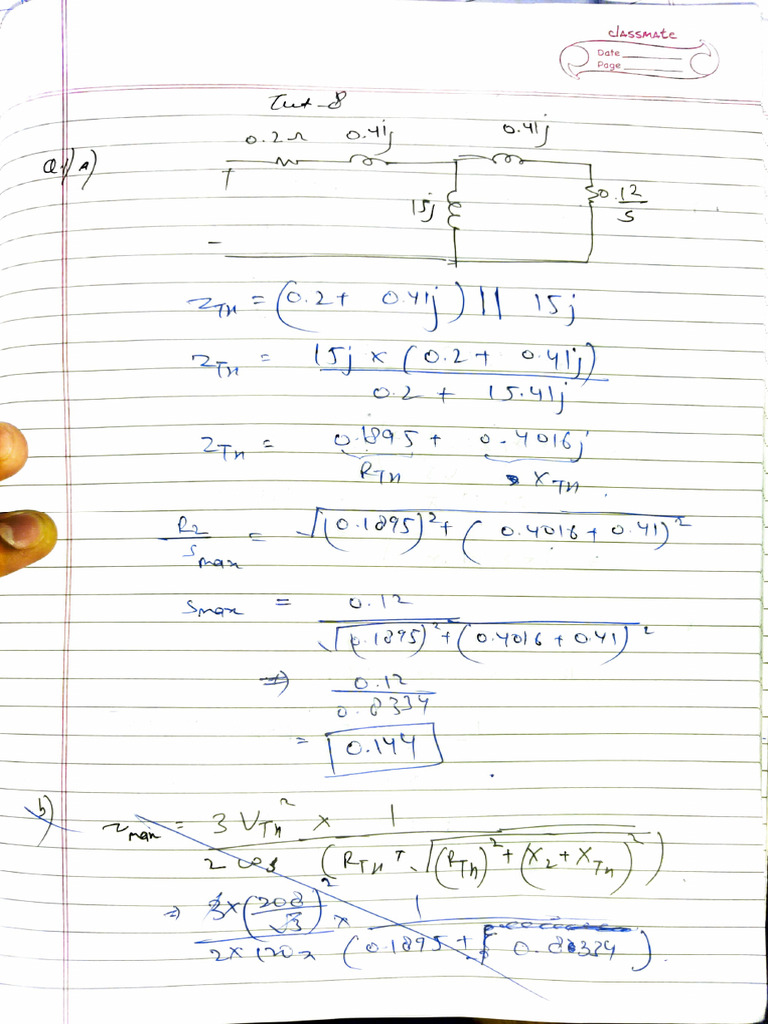 classmate
Date
Page
Tut-8
Q.1) A)
0.2Ω 0.41j 0.41j
15j 0.12/s
Z_Th = (0.2 + 0.41j) || 15j
Z_Th = 15j × (0.2 + 0.41j) / 0.2 + 15.41j
Z_Th = 0.1895 + 0.4016j
R_Th X_Th
R2/s_max = √(0.1895)² + (0.4016 + 0.41)²
s_max = 0.12 / √(0.1895)² + (0.4016 + 0.41)²
⇒ 0.12 / 0.8334
= 0.144
b) τ_max = 3 V_Th² × 1 / 2 ωs (R_Th + √(R_Th)² + (X2 + X_Th)²)
⇒ 3 × (208/√3)² × 1 / 2 × 120π (0.1895 + 0.8334)